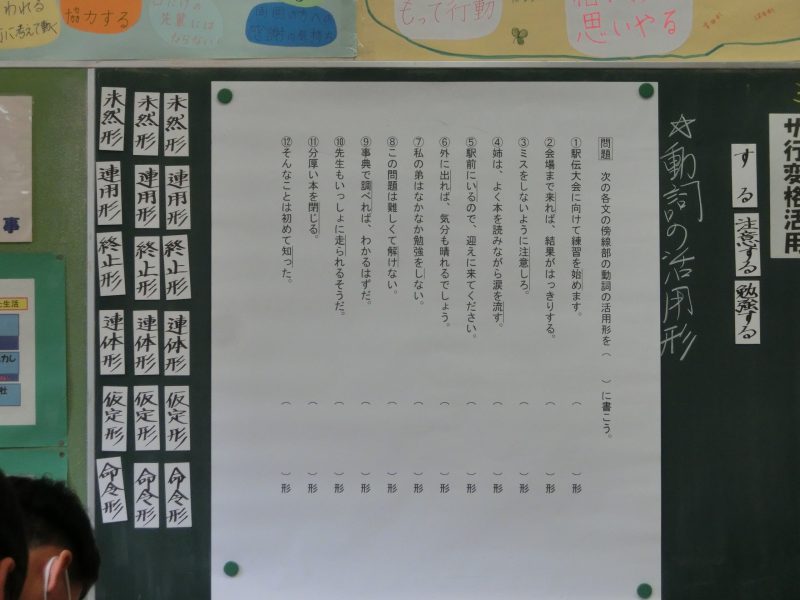 われる
に考えて動く
協力する
もって行動
思いやる
サ行変格活用
する
注意する
勉強する
☆動詞の活用形
問題 次の各文の傍線部の動詞の活用形を( )に書こう。
①駅伝大会に向けて練習を始めます。( )形
②会場まで来れば、結果がはっきりする。( )形
③ミスをしないように注意しろ。( )形
④姉は、よく本を読みながら涙を流す。( )形
⑤駅前にいるので、迎えに来てください。( )形
⑥外に出れば、気分も晴れるでしょう。( )形
⑦私の弟はなかなか勉強をしない。( )形
⑧この問題は難しくて解けない。( )形
⑨事典で調べれば、わかるはずだ。( )形
⑩先生もいっしょに走られるそうだ。( )形
⑪分厚い本を閉じる。( )形
⑫そんなことは初めて知った。( )形
未然形 未然形 未然形
連用形 連用形 連用形
終止形 終止形 終止形
連体形 連体形 連体形
仮定形 仮定形 仮定形
命令形 命令形 命令形
事
生活
社